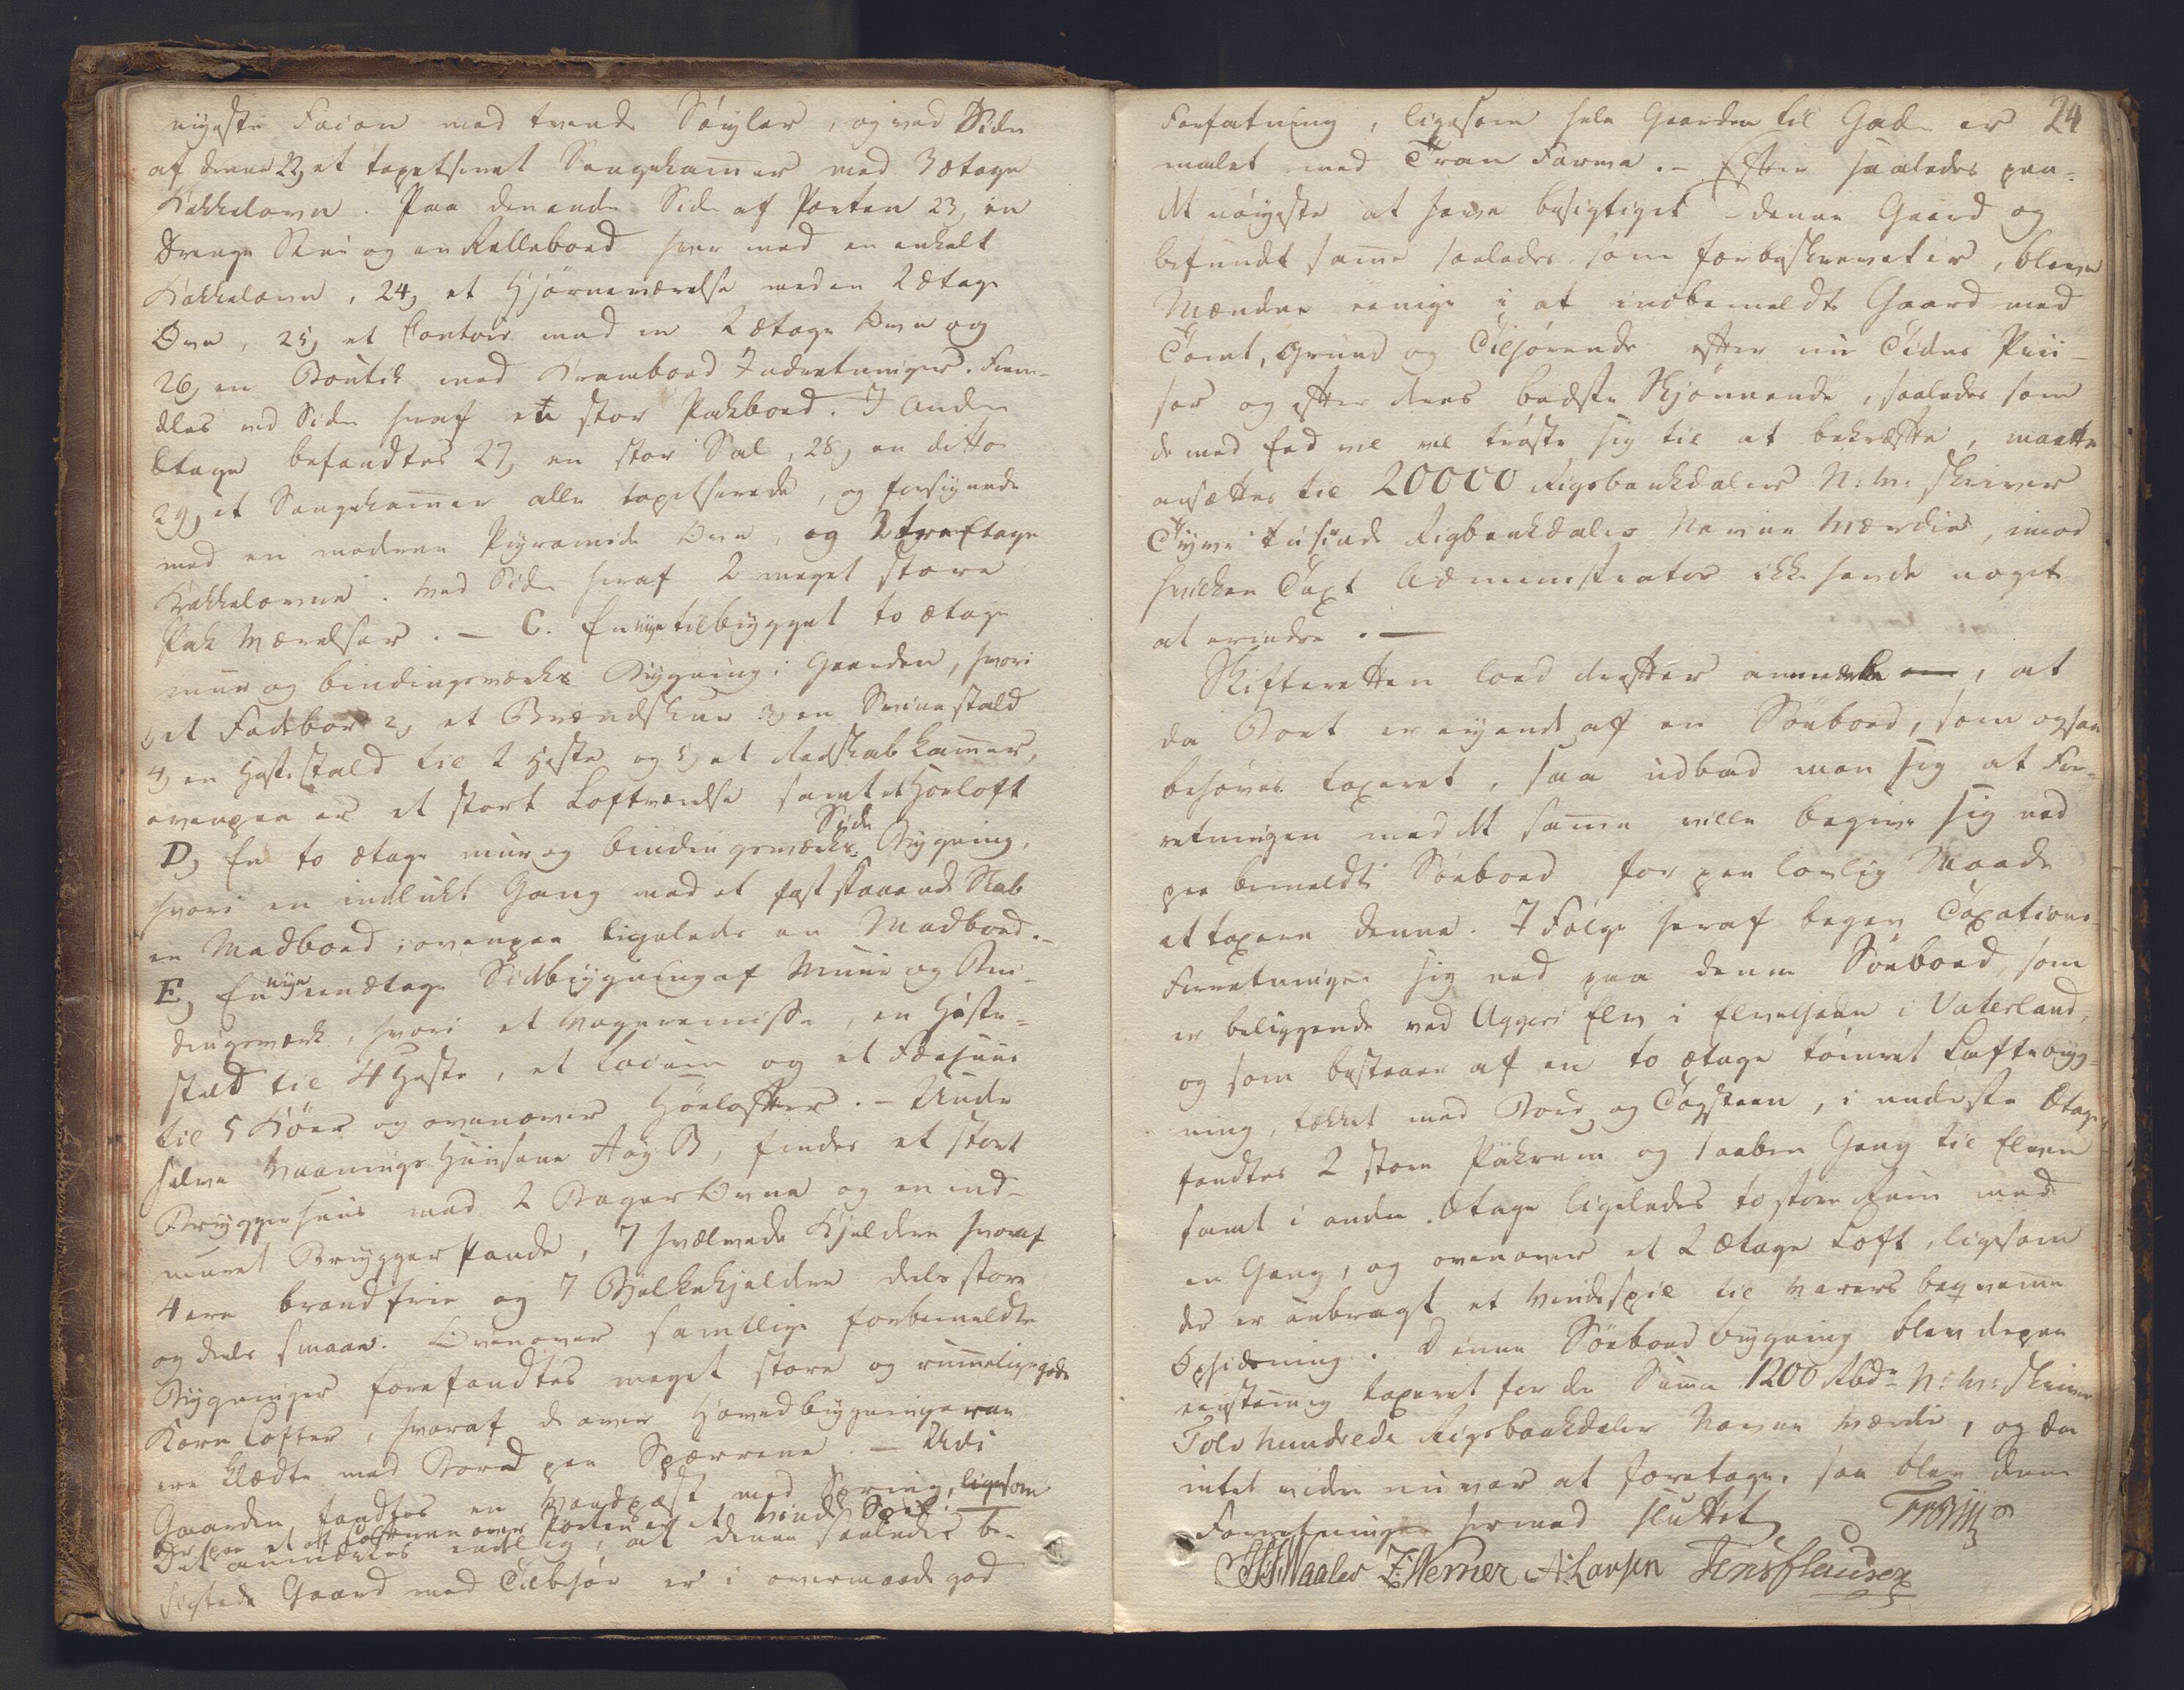 nyeste Facon med tvende Söyler, og ved Siden
af denne 22, et tapetseret Sengekammer med 3 etage
Kakkelovn. Paa den anden Side af Porten 23, en
Drenge Stue og en Rullebod hver med en enkelt
Kakkelovn, 24, et Hjörneværelse med en 2 etage
Ovn, 25, et Contoir med en 2 etage Ovn og
26, en Boutik med Krambod Indretninger. Frem-
deles ved Siden heraf en stor Pakbod. I Anden
Etage befandtes 27, en stor Sal, 28, en ditto
29, et Sengekammer alle tapetserede, og forsynede
med en moderne Pyramide Ovn, og 2 tre Etage
Kakkelovne. Ved Siden heraf 2 meget store
Pak Værelser. — C. En nye tilbygget to etage
muur og bindingsværks Bygning i Gaarden, hvori
1, et Fadebor 2, et Brændskur 3, en Sviinestald
4, en Hestestald til 2 Heste og 5, et Redskabkammer,
ovenpaa er et stort Loftværelse samt et Höeloft
D, En to etage muur og bindingsværks Side Bygning,
hvori en indlukt Gang med et fast staaende Skab
en Madbod, ovenpaa ligeledes en Madbod. –
E, En nye eenetage Sidebygning af Muur og Bin-
dingsværk, hvori et Vognremisse, en Heste-
stald til 4 Heste, et Locum og et Fæehuus
til 5 Köer og ovenover Höelofter. – Under
selve Vaanings Huusene A og B, findes et stort
Bryggerhuus med 2 Bager Ovne og en ind-
muret Brygger Pande, 7 hvælvede Kjeldere hvoraf
4 ere brandfrie og 7 Bjelkekjeldere deels store
og deels smaae. Ovenover samtlige forbemeldte
Bygninger forefandtes meget store og rummelige gode
Korn Lofter, hvoraf de over Hovedbygningerne
ere klædte med Bord paa Spærrene. — Udi
Gaarden fandtes en Vandpost med Spring, ligesom
der paa et af Lofterne over Porten er et Vinde Spil.
Det anmærkes endelig, at denne saaledes be-
sigtede Gaard med Tilbehör er i overmaade god
24
Forfatning, ligesom hele Gaarden til Gade er
malet med Tran Farve. – Efter saaledes paa
det nöyeste at have besigtiget denne Gaard og
befundt samme saaledes som forbeskrevet er, bleve
Mændene eenige i at indbemeldte Gaard med
Tomt, Grund og Tilhörende efter nu Tidens Prii-
ser og efter deres bedste Skjönnende, saaledes som
de med Eed vel tröste sig til at bekræfte, maatte
ansættes til 20000 Rigsbankdaler N: V: skriver
Tyve tusinde Rigbankdaler Navne Værdie, imod
hvilken Taxt Administrator ikke havde noget
at erindre. —
Skifteretten lod derefter anmærke, at
da Boet er eyende af en Söebod, som ogsaa
behöves taxeret, saa udbad man sig at For-
retningen med det samme ville begive sig ned
paa bemeldte Söebod for paa lovlig Maade
at taxere denne. I Fölge heraf begav Taxations
Forretningen sig ned paa denne Söebod, som
er beliggende ved Aggers Elv i Elvegaden i Vaterland,
og som bestaaer af en to etage tömret Lafte byg-
ning, tækket med Bord og Tagsteen, i underste Etage
fandtes 2 store Pakrum og 1 aaben Gang til Elven
samt i anden Etage ligeledes to store Rum med
en Gang, og ovenover et 2 Etage Loft, ligesom
der er anbragt et Vindespil til Varers beqvemme
Ophidsning. Denne Söebod bygning blev derpaa
eenstemig taxeret for den Summa 1200 Rbdr N: V: skriver
Tolv hundrede Rigsbankdaler Navne Værdie, og da
intet videre nu var at foretage, saa blev denne
Forretningen hermed sluttet
Waaler Z: Werner A: Larsen Jens Clausen